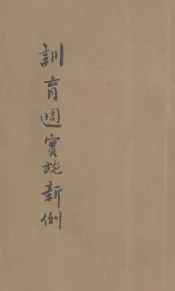 訓育週實施新例